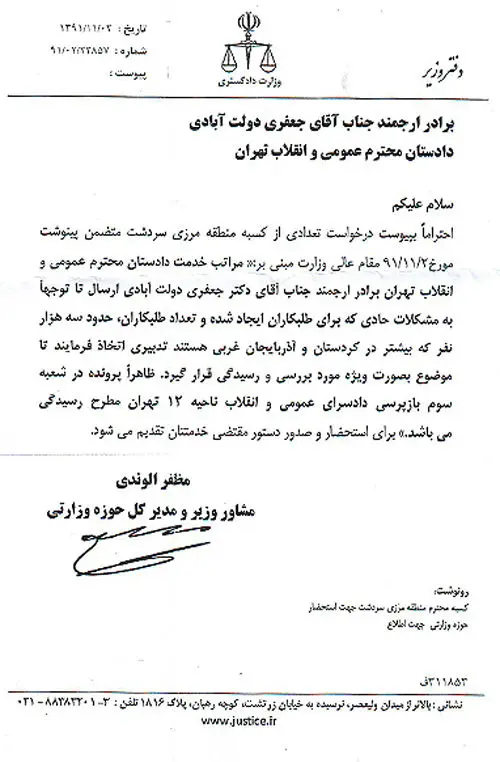 تاریخ : ۱۳۹۱/۱۱/۰۲
شماره : ۹۱/۰۲/۲۳۸۵۷
پیوست :
وزارت دادگستری
دفتر وزیر
برادر ارجمند جناب آقای جعفری دولت آبادی
دادستان محترم عمومی و انقلاب تهران
سلام علیکم
احتراماً بپیوست درخواست تعدادی از کسبه منطقه مرزی سردشت متضمن پینوشت
مورخ ۹۱/۱۱/۲ مقام عالی وزارت مبنی بر:« مراتب خدمت دادستان محترم عمومی و
انقلاب تهران برادر ارجمند جناب آقای دکتر جعفری دولت آبادی ارسال تا توجهاً
به مشکلات حادی که برای طلبکاران ایجاد شده و تعداد طلبکاران، حدود سه هزار
نفر که بیشتر در کردستان و آذربایجان غربی هستند تدبیری اتخاذ فرمایند تا
موضوع بصورت ویژه مورد بررسی و رسیدگی قرار گیرد. ظاهراً پرونده در شعبه
سوم بازپرسی دادسرای عمومی و انقلاب ناحیه ۱۲ تهران مطرح رسیدگی
می باشد.» برای استحضار و صدور دستور مقتضی خدمتتان تقدیم می شود.
مظفر الوندی
مشاور وزیر و مدیر کل حوزه وزارتی
رونوشت:
کسبه محترم منطقه مرزی سردشت جهت استحضار
حوزه وزارتی جهت اطلاع
۳۱۱۸۵۳ف
نشانی : بالاتر از میدان ولیعصر، نرسیده به خیابان زرتشت، کوچه رهبان، پلاک ۱۸۱۶ تلفن : ۳-۸۸۳۸۳۲۰۱ - ۰۲۱
www.justice.ir